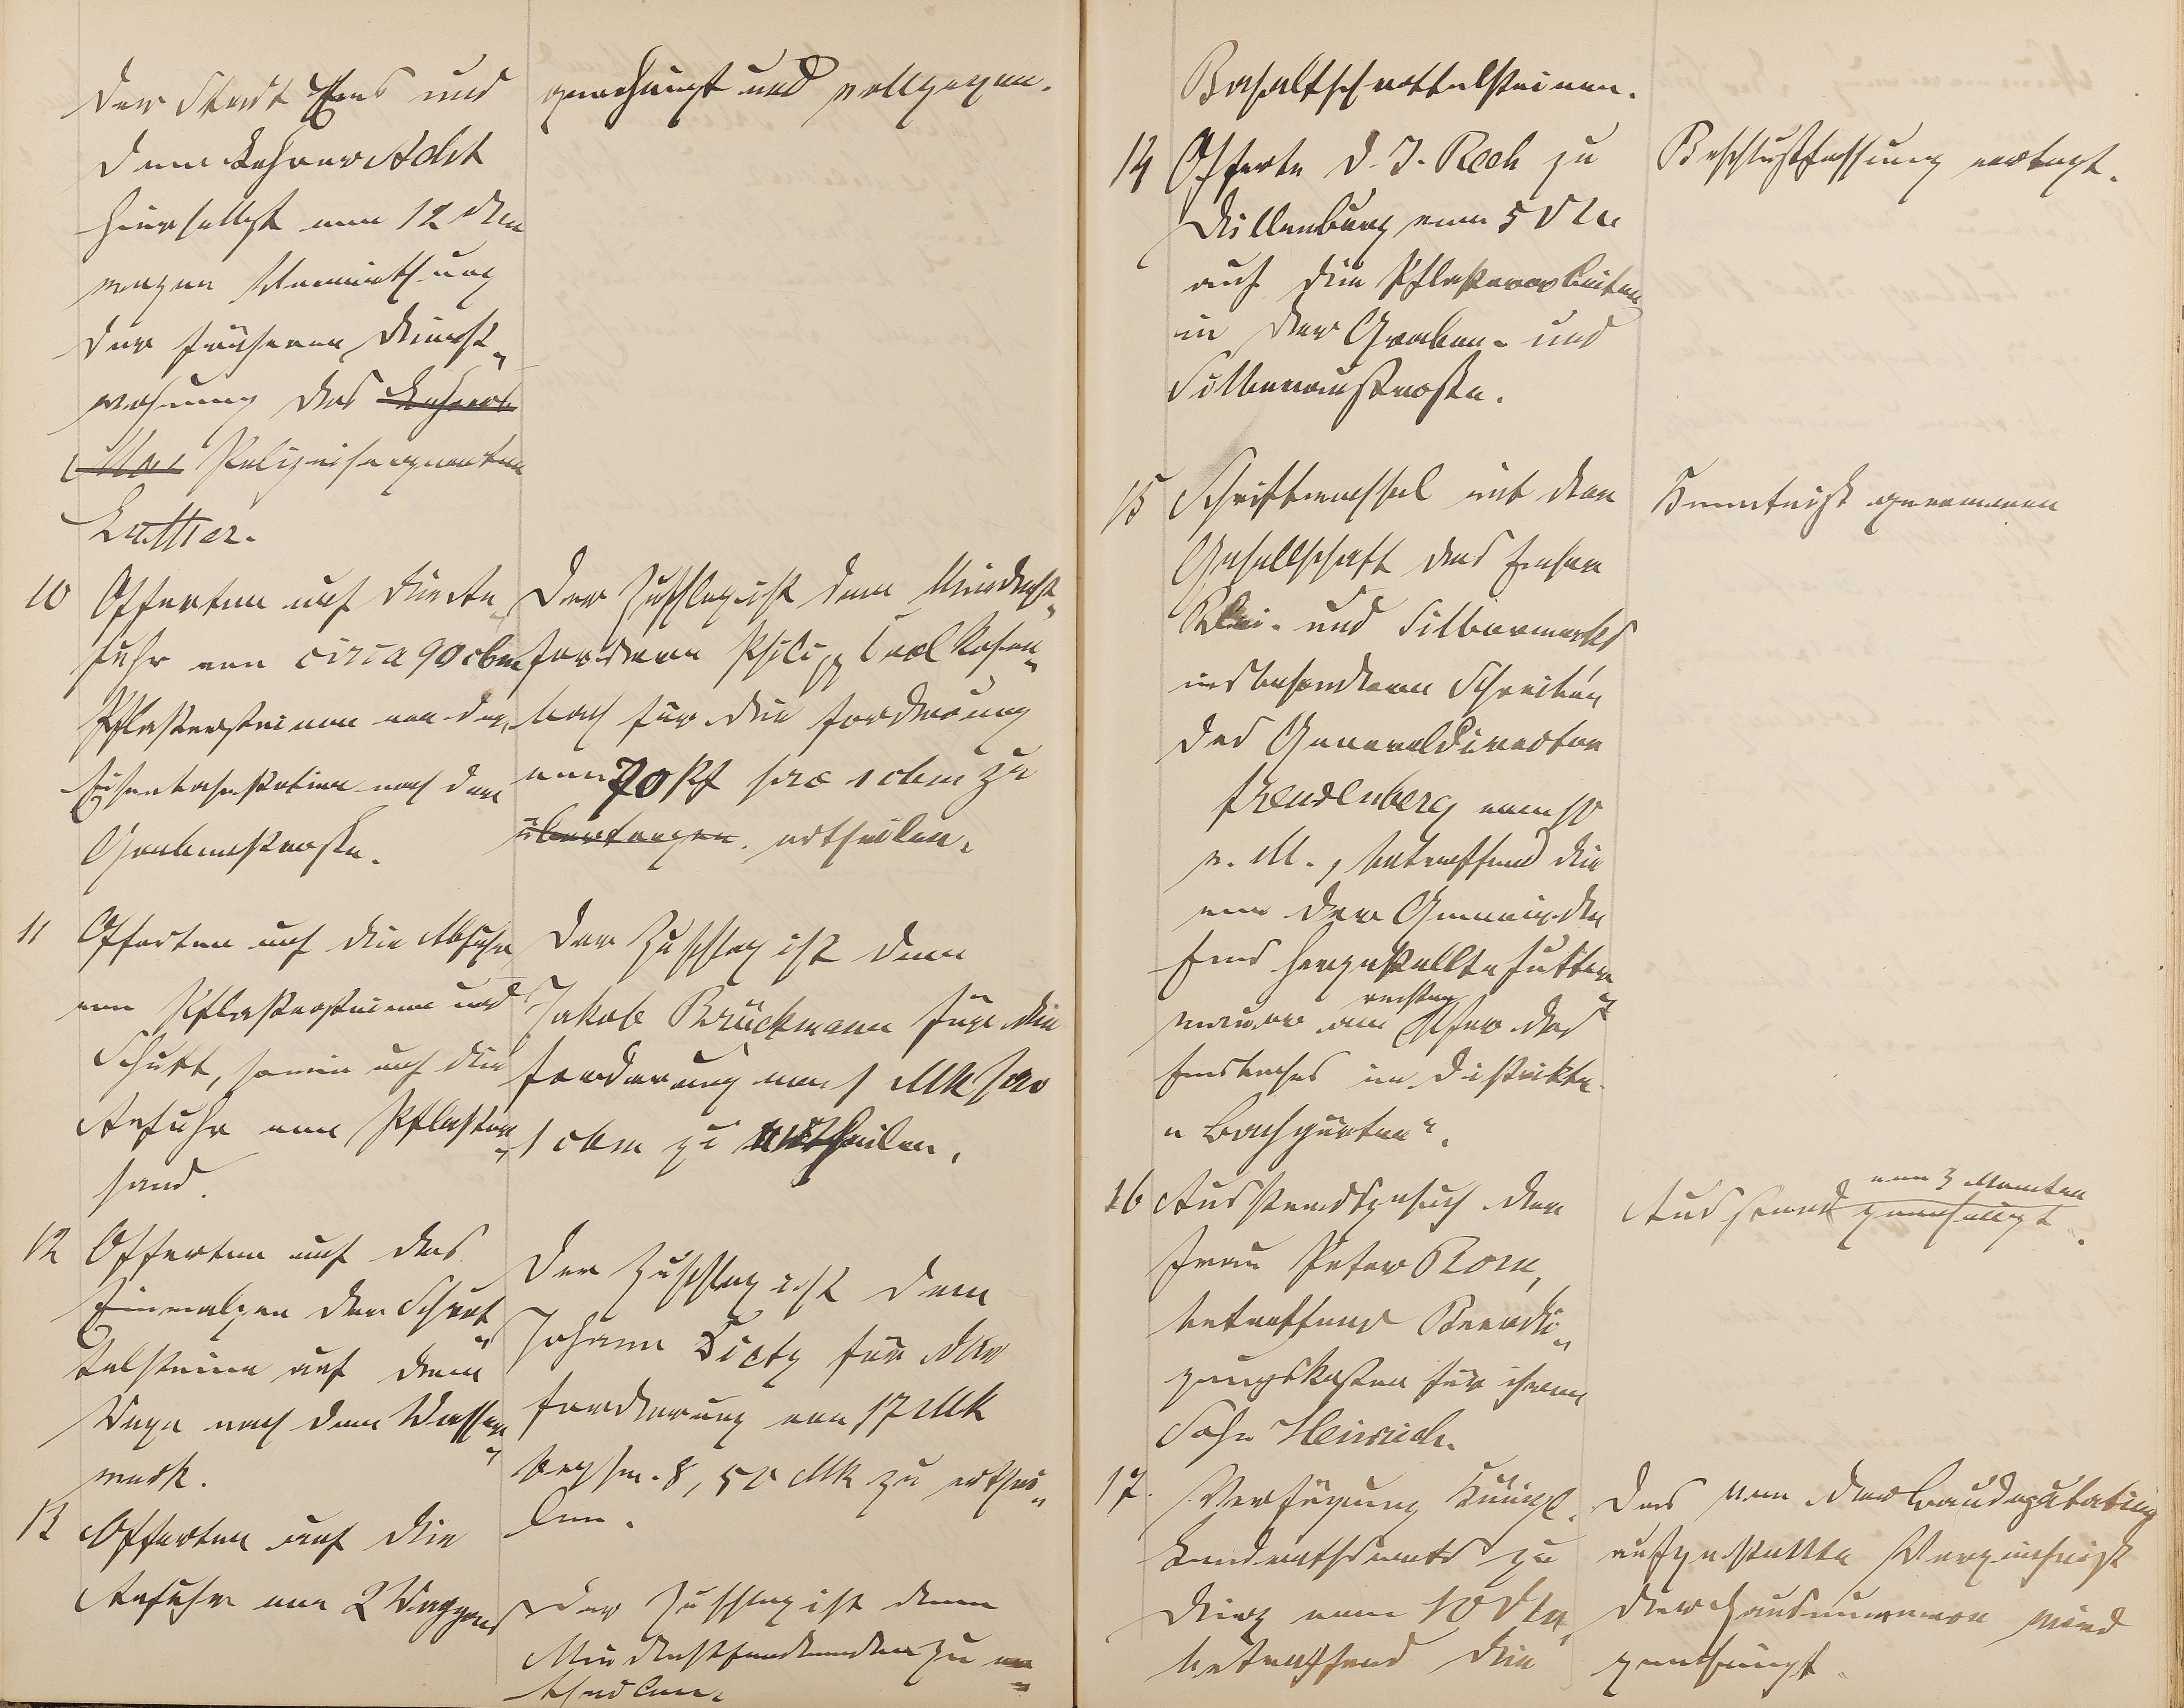 der Stadt Ems und
dem Lehrer Acht
hierselbst vom 12 dM
wegen Vermiethung
der früheren Dienst-
wohnung des Lehrers
Polizeisergeanten
Luther.
genehmigt und vollzogen.
10 Offerten auf die
fuhr von circa 90 cbm
Pflastersteinen von der
Eisenbahnstation nach der
Grabenstraße.
Der Zuschlag ist dem Mindest-
fordernden Philipp Carl Rosen-
bach für die Forderung
von 70 Pf pro 1 cbm zu
übertragen. ertheilen.
11 Offerten auf die Abfuhr
von Pflastersteinen und
Schutt, sowie auf die
Anfuhr von Pflaster-
sand.
Der Zuschlag ist dem
Jakob Brückmann für die
Forderung von 1 Mk pro
1 cbm zu ertheilen.
12 Offerten auf das
Einwalzen der Schrot-
telsteine auf dem
Wege nach dem Wasser-
werk.
Der Zuschlag ist dem
Johann Dietz für die
Forderung von 17 Mk
bezhw. 8,50 Mk zu erthei-
len.
13 Offerten auf die
Anfuhr von 2 Waggons
Der Zuschlag ist dem
Mindestfordernden zu er-
theilen.
Basaltschrottelsteinen.
14 Offerte d. J. Rech zu
Dillenburg vom 5 d M.
auf die Pflasterarbeiten
in der Graben- und
Silberaustraße.
Beschlußfassung vertagt.
15 Schriftwechsel mit der
Gesellschaft des Emser
Blei- und Silberwerks
insbesondere Schreiben
des Generaldirectors
Freudenberg vom 10
v. M., betreffend die
von der Gemeinde
Ems hergestellte Futter-
mauer am rechten Ufer des
Emsbaches im Distrikte
"Bachgärten".
Kenntniß genommen
16 Ausstandsgesuch der
Frau Peter Korn,
betreffend Beerdi-
gungskosten für ihren
Sohn Heinrich.
Ausstand von 3 Monaten
genehmigt.
17. Verfügung Königl.
Landrathsamts zu
Diez vom 10 d M,
betreffend die
Das von der Baudeputation
aufgestellte Verzeichniß
der Hausnummern wird
genehmigt.